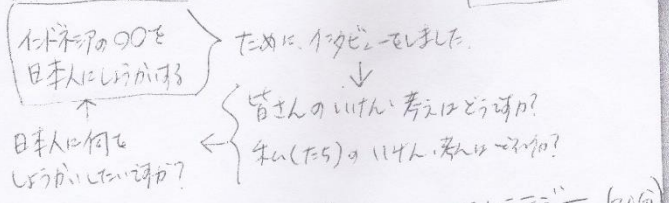 インドネシアの〇〇を
日本人にしょうかいする
ために、インタビューをしました。
↓
皆さんのいけん・考えはどうですか?
私(たち)のいけん・考えは どうですか?
↑
←
日本人に何を
しょうかいしたいですか?